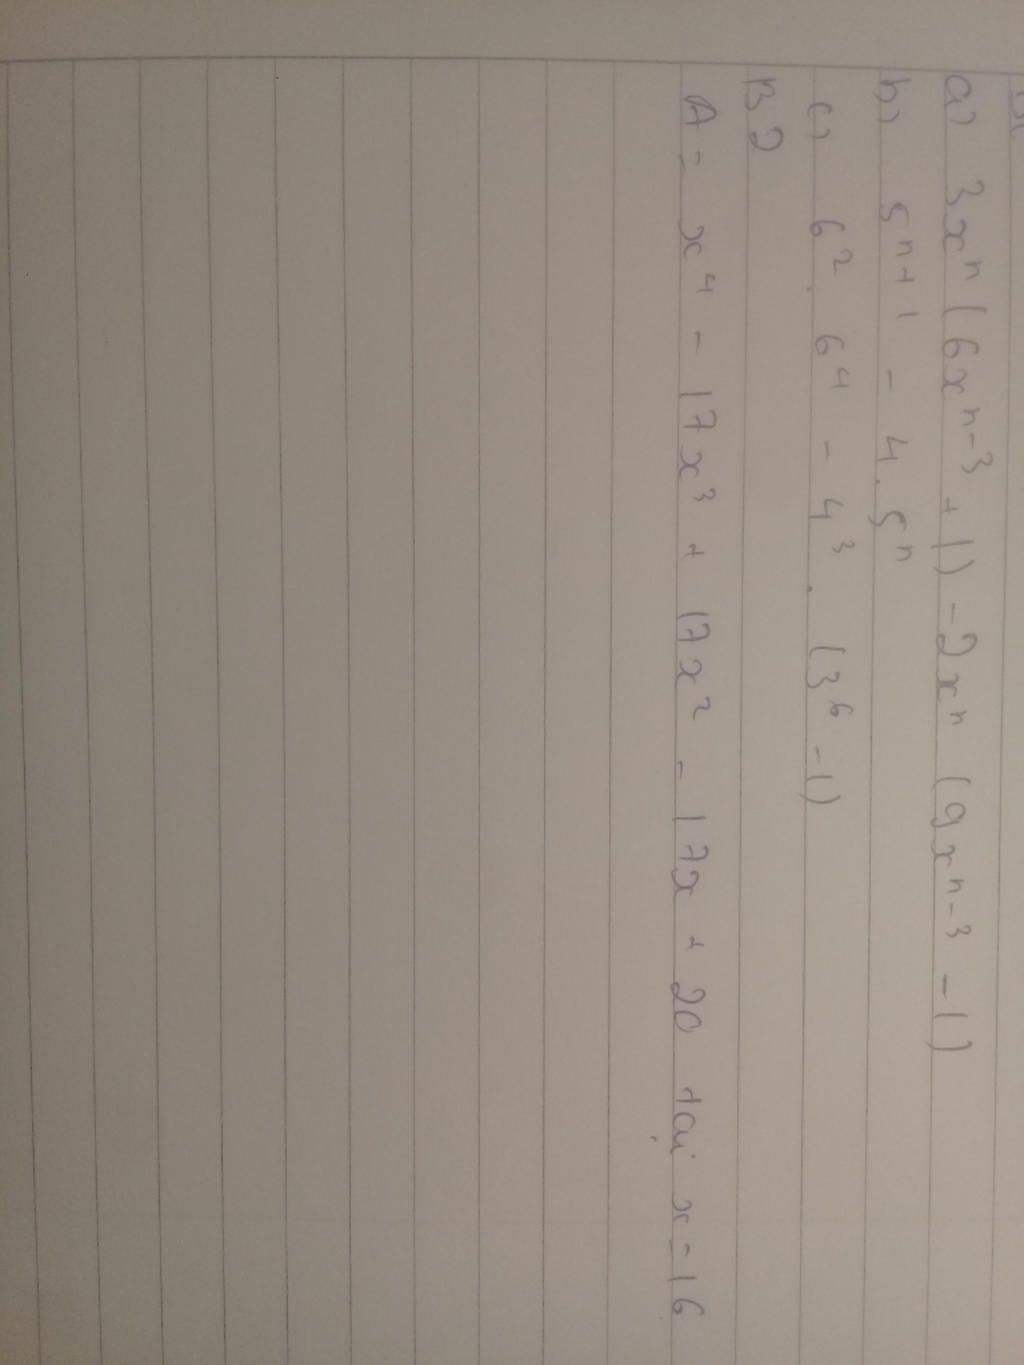 a) 3xⁿ (6xⁿ⁻³ + 1) - 2xⁿ (9xⁿ⁻³ - 1)
b) 5ⁿ⁺¹ - 4 . 5ⁿ
c) 6² . 6⁴ - 4³ . (3⁶ - 1)
B2
A = x⁴ - 17x³ + 17x² - 17x + 20 tại x = 16